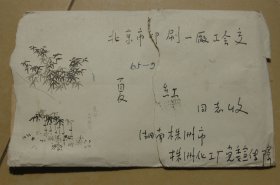 北京市印刷一厂工会交
65-9
夏
红
同志收
湖南株洲市
株洲化工厂党委宣传